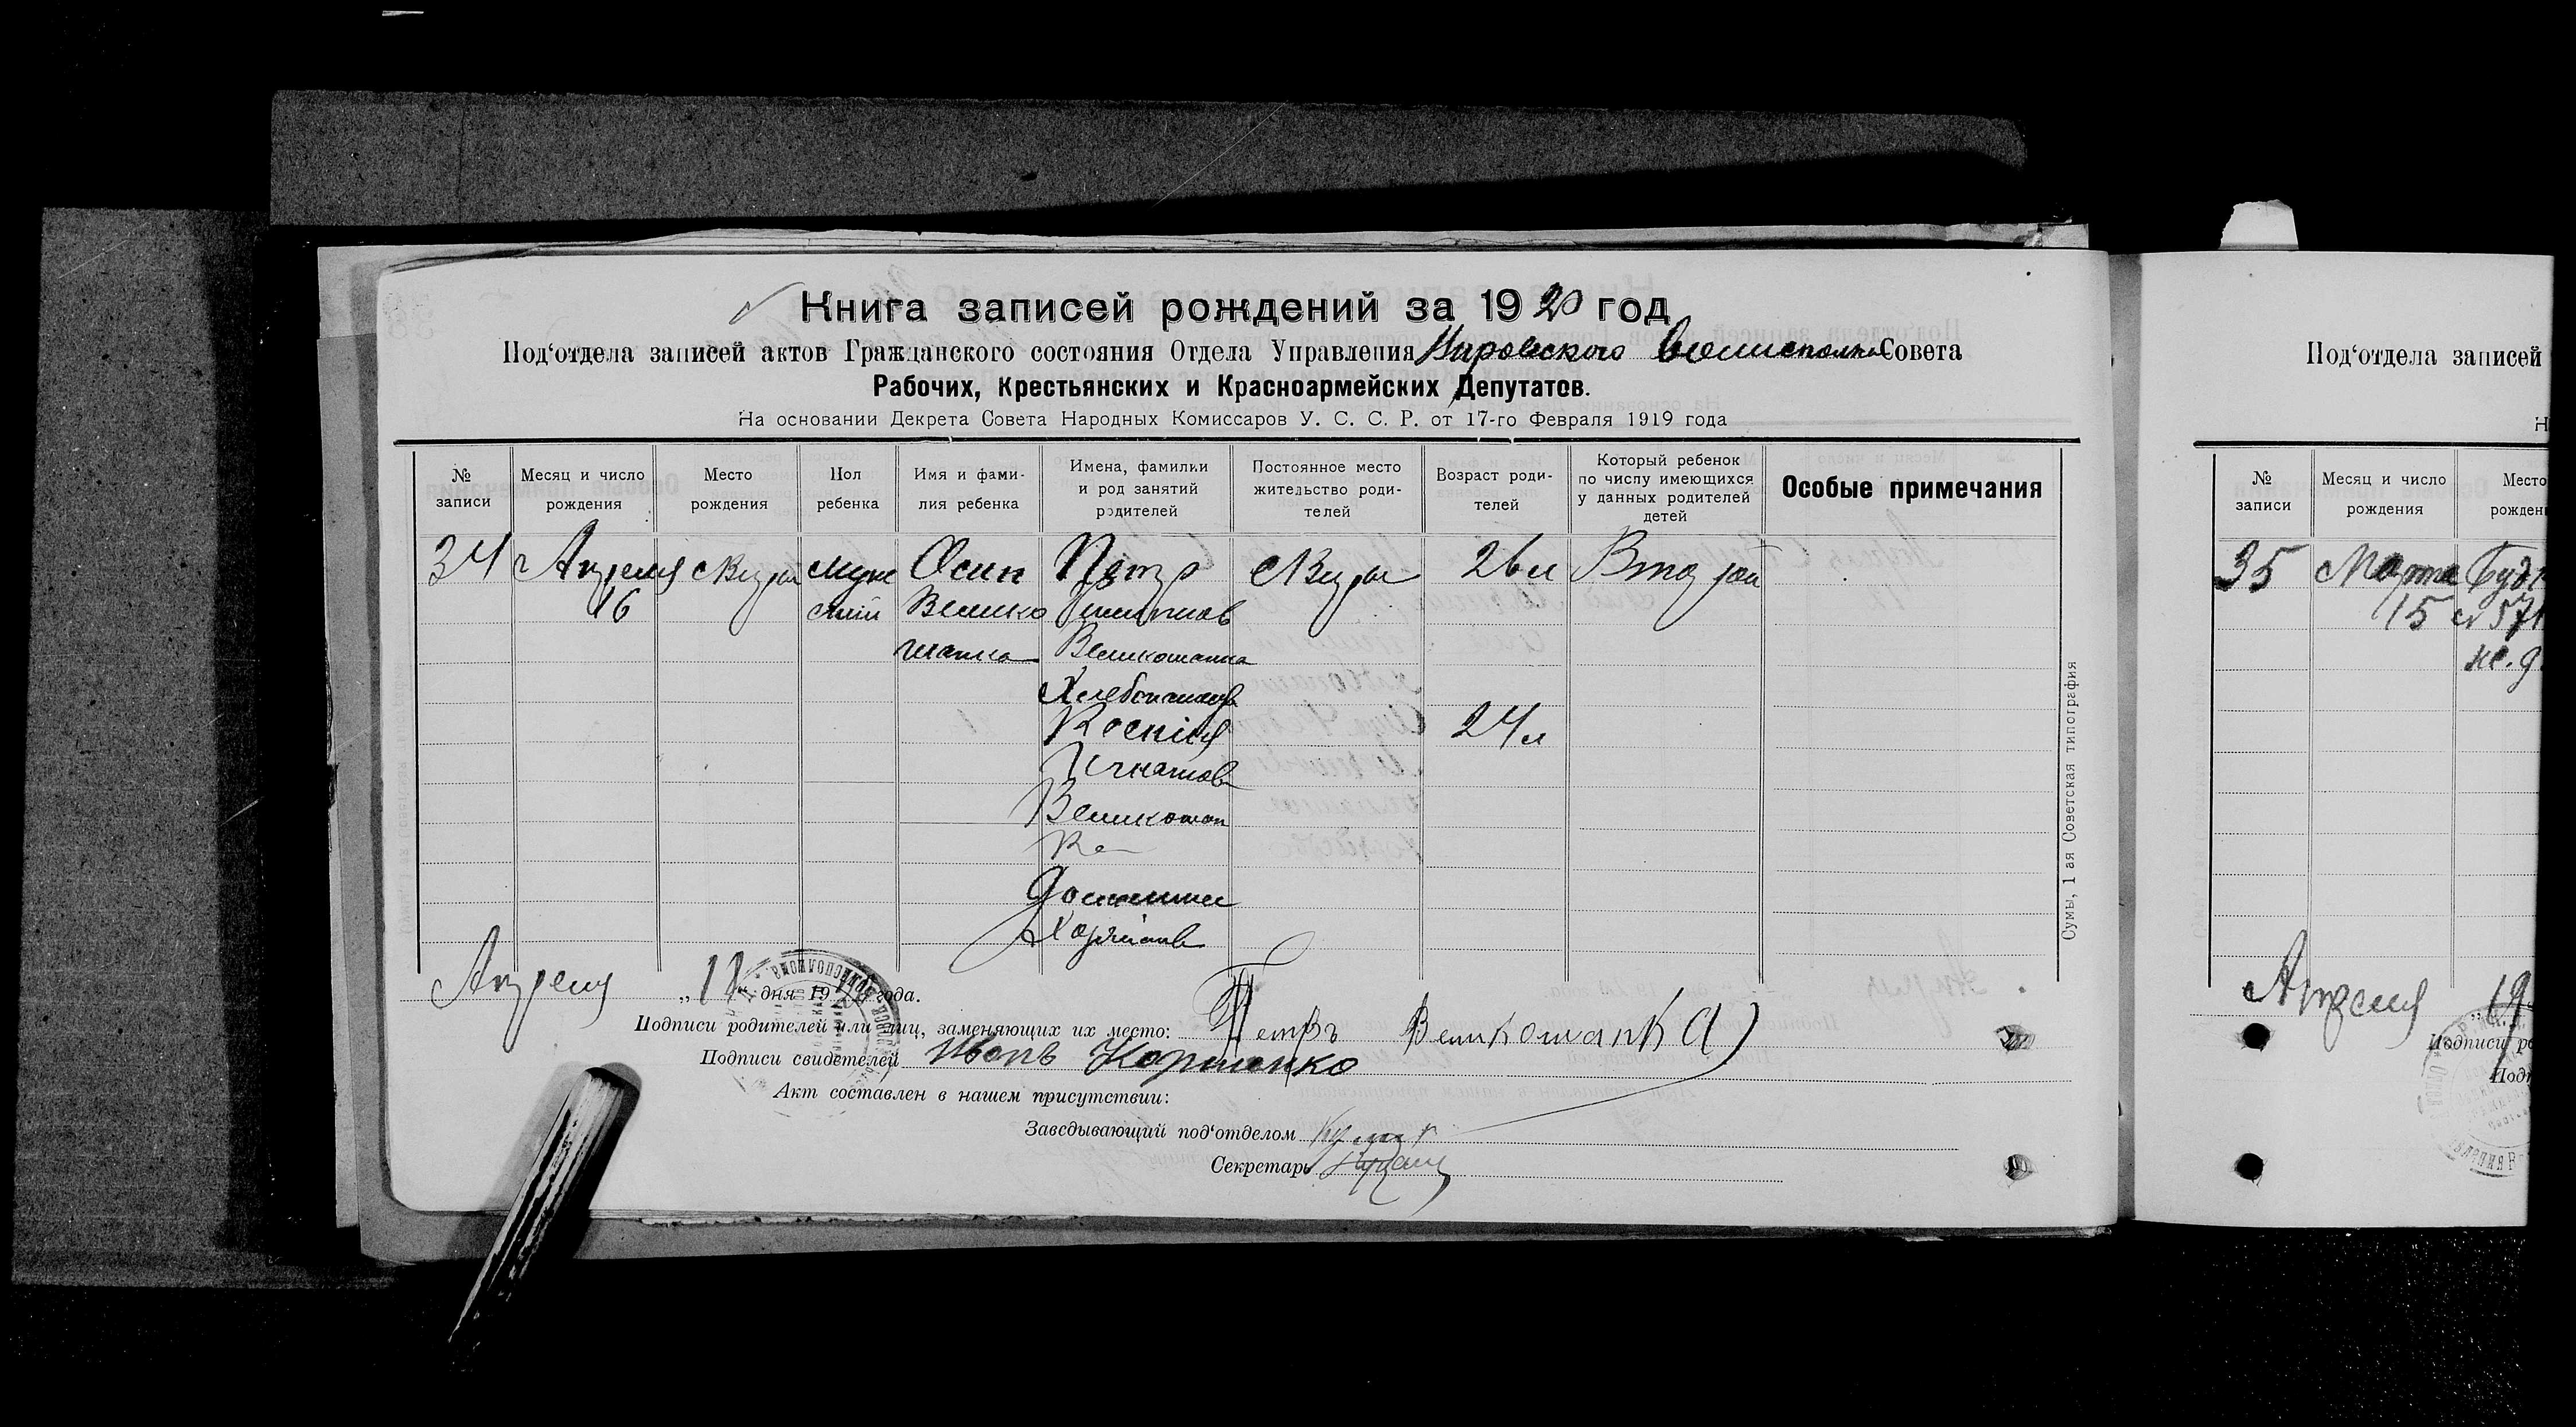 Книга записей рождений за 1920 год
Под‘отдела записей актов Гражданского состояния Отдела Управления Совета
Рабочих, Крестьянских и Красноармейских Депутатов.
На основании Декрета Совета Народных Комиссаров У. С. С. Р. от 17-го Февраля 1919 года
№ записи
Месяц и число рождения
Место рождения
Пол ребенка
Имя и фами-
лия ребенка
Имена, фамилии
и род занятий
родителей
Постоянное место
жительство роди-
телей
Возраст роди-
телей
Который ребенок
по числу имеющихся
у данных родителей
детей
Особые примечания
34 Апреля муж Осип Петр 26 л Второй
16 ский Велико
шапка Великошапка
Хлебопашец
Ксения 24 л
Игнатов
Великошап
ка
домашнее
хозяйство
Апреля дня 1920 года.
Подписи родителей или лиц, заменяющих их место: Петръ Великошапка
Подписи свидетелей Иванъ
Акт составлен в нашем присутствии:
Заведывающий под‘отделом
Секретарь
Сумы, 1 ая Советская типография
Под‘отдела записей
№ записи
Месяц и число рождения
Место
рожден
35 Марта
15
Апреля 19
Подписи